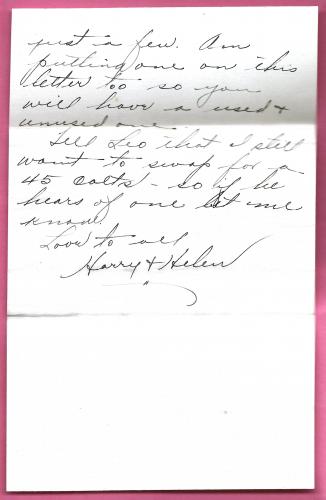 just a few. Am
putting one on this
letter too so you
will have a used +
unused one.
Tell Leo that I still
want to swap for a
45 Colts - so if he
hears of one let me
know.
Love to all
Harry + Helen
"